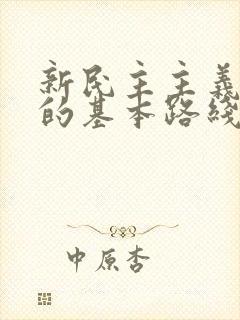 新民主主義
的基本路綫
中原杏